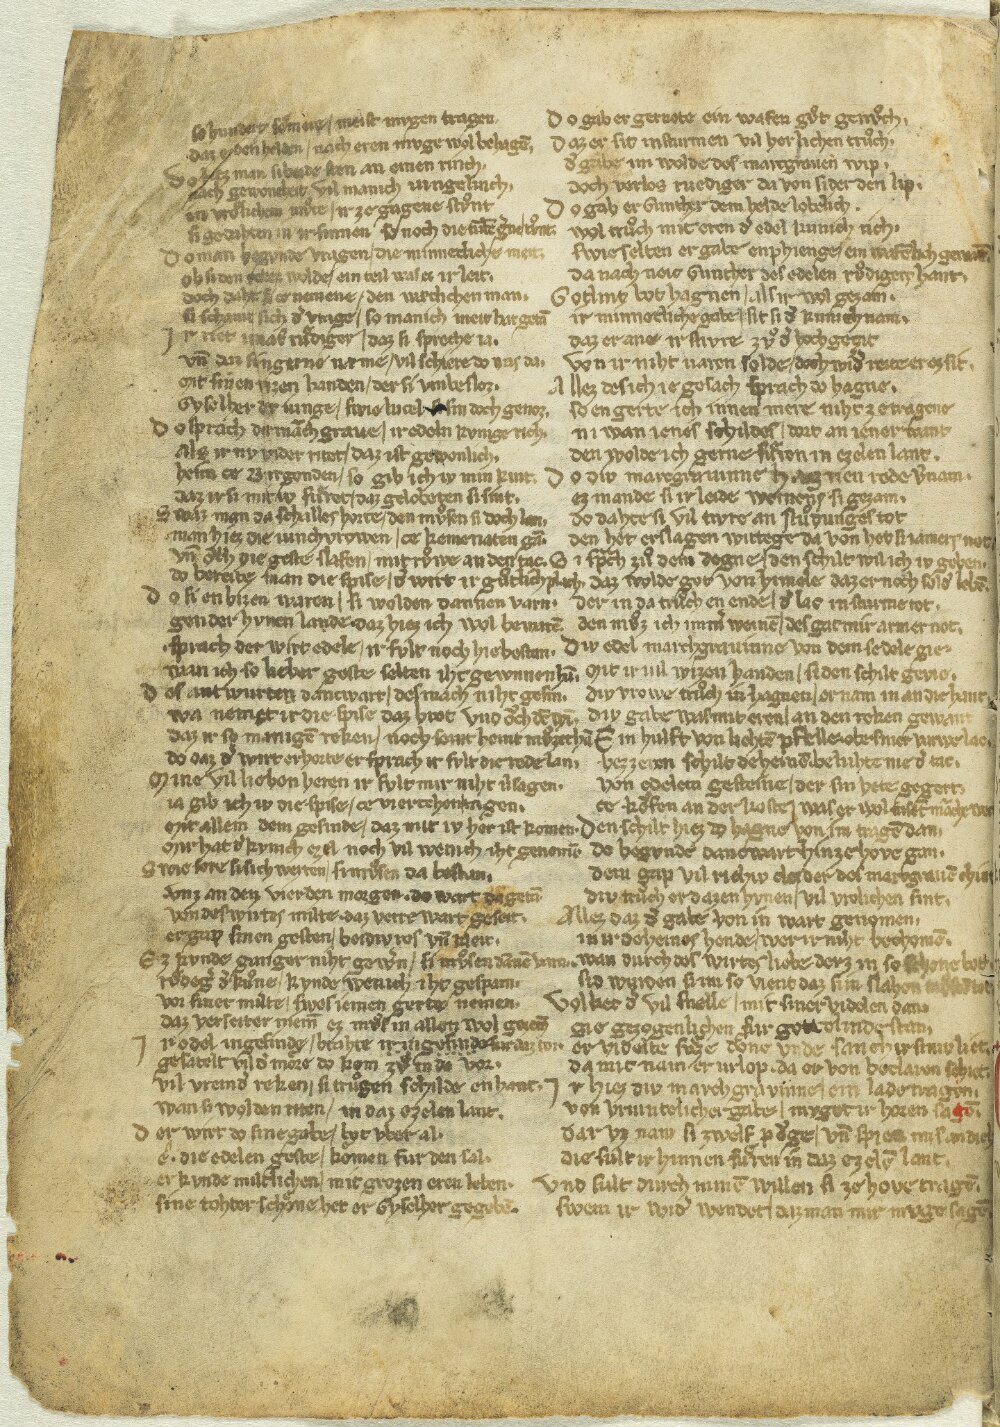 so hundert sömere / meist mygen tragen.
daz ez den helden / nach eren myge wol behagē.
Do hiez man si beide sten an einen rinch.
nach gewonheit vil manich iungelinch.
in vrölichem mute / ir ze gagene stunt
si gedahten in ir sinnen so noch die
Do man begunde vragen / die minnecliche meit.
ob si den reken wolde / ein teil was ez ir leit.
doch daht si ce nemene / den wetlichen man.
si schamt sich d vrage / so manich meit hat getā
Ir riet ir vater rüdiger / daz si spreche ia.
vn daz si in gerne neme / vil schiere do was da.
mit sinen wizen handen / der si vmbesloz.
Gyselher der iunge / swie lucel si sin doch genoz.
Do sprach der march graue / ir edeln kynige rich.
Als ir ny wider ritet / daz ist gewonlich.
heim ce Burgonden / so gib ich iv min kint.
daz ir si mit iv füret / daz gelobeten si sint.
Swaz man da schalles horte / den mvsen si doch lan.
man hiez die iunchvrowen / ce kemenaten gan
vn och die geste slafen / mit rüwe an den tac.
do bereite man die spise / d wirt ir gütlich pflach.
Do si enbizen waren / si wolden dannen varn.
gen der hynen lande. daz hiez ich wol bewarn
sprach der wirt edele / ir sylt noch hie bestan.
wan ich so lieber geste selten iht gewunnen hā.
Des antwurten dancwart / des mach niht gesin.
wa nemet ir die spise daz brot vnd och dē wī.
daz ir so manigē reken / noch hint
do daz d wirt erhorte er sprach ir sylt die rede lan.
Mine vil lieben heren ir sylt mir niht ūsagen.
ia gib ich iv die spise / ce viercehen tagen.
mit allem dem gesinde / daz mit iv her ist komen.
Mir hat d kynich ezel noch vil wenich iht genomē
Swie sere si sich werten / si müsen da bestan.
vnz an den vierden morgen. do wart da getā
von des wirtes milte. daz verre wart geseit.
er gap sinen gesten / beidiv ros vn kleit.
Ez kynde langer niht gewern / si mysen dānē varn.
rüdeger d küne / kynde wenich iht gesparn.
vor siner milte / swes iemen gerte nemen.
daz verseiter niemē ez mvs in allen wol gezem
Ir edel ingesinde / brahte
gesatelt vil d more do kom zv in da vor.
vil vremd reken / si trugen schilde en hant.
wan si wolden riten / in daz ezelen lant.
Der wirt do sine gabe / bot vber al.
e. die edelen geste / komen fur den sal.
er kynde miltlichen / mit grozen eren leben.
sine tohter schone het er Gyselher gegebē.
Do gab er gernote ein wafen güt genüch.
Daz er sit in sturmen vil herlichen trüch.
d gabe im wolde des marcgrauen wip.
doch verlos ruediger da von sider den lip.
Do gab er Gunther dem helde lobelich.
wol trüch mit eren d edel kunich rich.
swie selten er gabe enphienge / ein
da nach neic Gunther des edelen rüdigers hant.
Gotlint bot hagnen / als ir wol gezam.
ir minnecliche gabe / sit si d kunich nam.
daz er ane ir stivre zv d hochgezit
von ir niht varen solde / doch wid rette er ez sit.
Allez des ich ie gesach sprach do hagne.
so en gerte ich innen mere niht ze tragene
ni wan ienes schildes / dort an iener want
den wolde ich gerne füren in ezelen lant.
Do div marcgrauinne hagnen rede vnam.
ez mande si ir leide weinens si gezam.
do dahte si vil tivre an nüdunges tot
den het erslagen wittege da von het si iamers not
Si sprch zü dem degne / den schilt wil ich iv geben.
daz wolde got von himele daz er noch solde lebē.
der in da trüch en ende / d lac in sturme tot.
den mvz ich imm weinē / des gat mir armer not.
Div edel marchgrauinne von dem sedele gie.
mit ir vil wizen handen / si den schilt gevie.
div vrowe trüch in hagnen / er nam in an die hant
div gabe was mit eren / an den reken gewant
Ein hulft von liehtē pfelle. obe siner varwe lac.
bezzeren schilt deheinē beluhte nie d tac.
von edelem gesteine / der sin hete gegert
ce koufen an der koste / was er wol
Den schilt hiez do hagne von im tragē dan.
do begynde dancwart hin ze hove gan.
dem gap vil richiv cleider des marhgrauē chint
div trüch er da zen hynen / vil vrolichen sint.
Allez daz d gabe von in wart genomen.
in ir deheines hende / wer ir niht bechomē.
wan durch des wirtes liebe derz in so schone bot
sid wurden si im so vient daz si in slahen
Volker d vil snelle / mit siner videlen dan.
gie gezogenlichen fur gotelinde stan.
er videlte süze done vnde sanch ir siniv liet.
da mit nam er urlop. da er von bechlaren schiet.
Ir hiez div marchgrauinne / ein lade tragen.
von vriuntlicher gabe / myget ir horen sagē.
dar vz nam si zwelf pöge / vn spien
die sült ir hinnen füren in daz ezelē lant.
Vnd sult durch minē willen si ze hove tragē.
swen ir wid wendet / daz man mir myge sagē